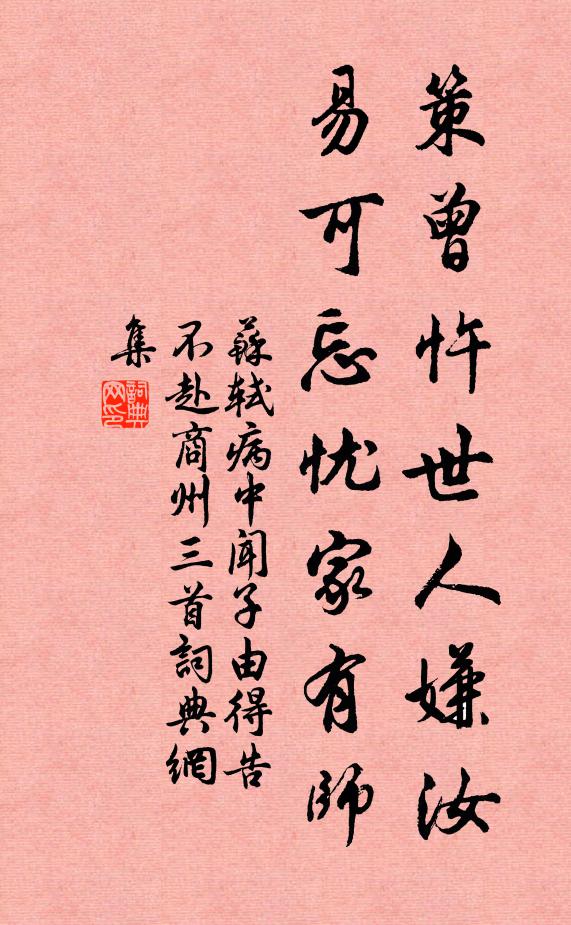 策曾忤世人嫌汝
易可忘忧家有師
蘇軾病中聞子由得告
不赴商州三首詞典網
集
詞典
网印